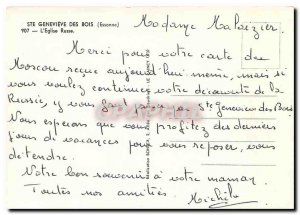 STE GENEVIÈVE DES BOIS (Essonne)
907 - L'Eglise Russe.
Madame Malvézier.
Merci pour votre carte de
Moscou reçue aujourd'hui même, mais si
vous voulez continuer votre découverte de la
Russie, il vous faut à Ste Geneviève des Bois
Nous espérons que vous profitez des derniers
jours de vacances pour vous reposer, vous
détendre.
Notre bon souvenir à votre maman
Toutes nos amitiés.
Michèle